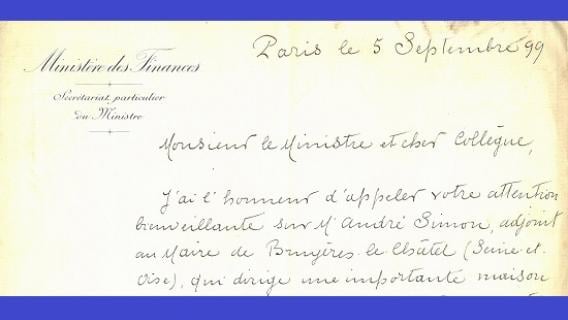 Ministère des Finances
Secrétariat particulier
du Ministre
Paris le 5 Septembre 99
Monsieur le Ministre et cher Collègue,
J'ai l'honneur d'appeler votre attention
bienveillante sur Mr André Simon, adjoint
au Maire de Bruyères-le-Châtel (Seine-et-
Oise), qui dirige une importante maison